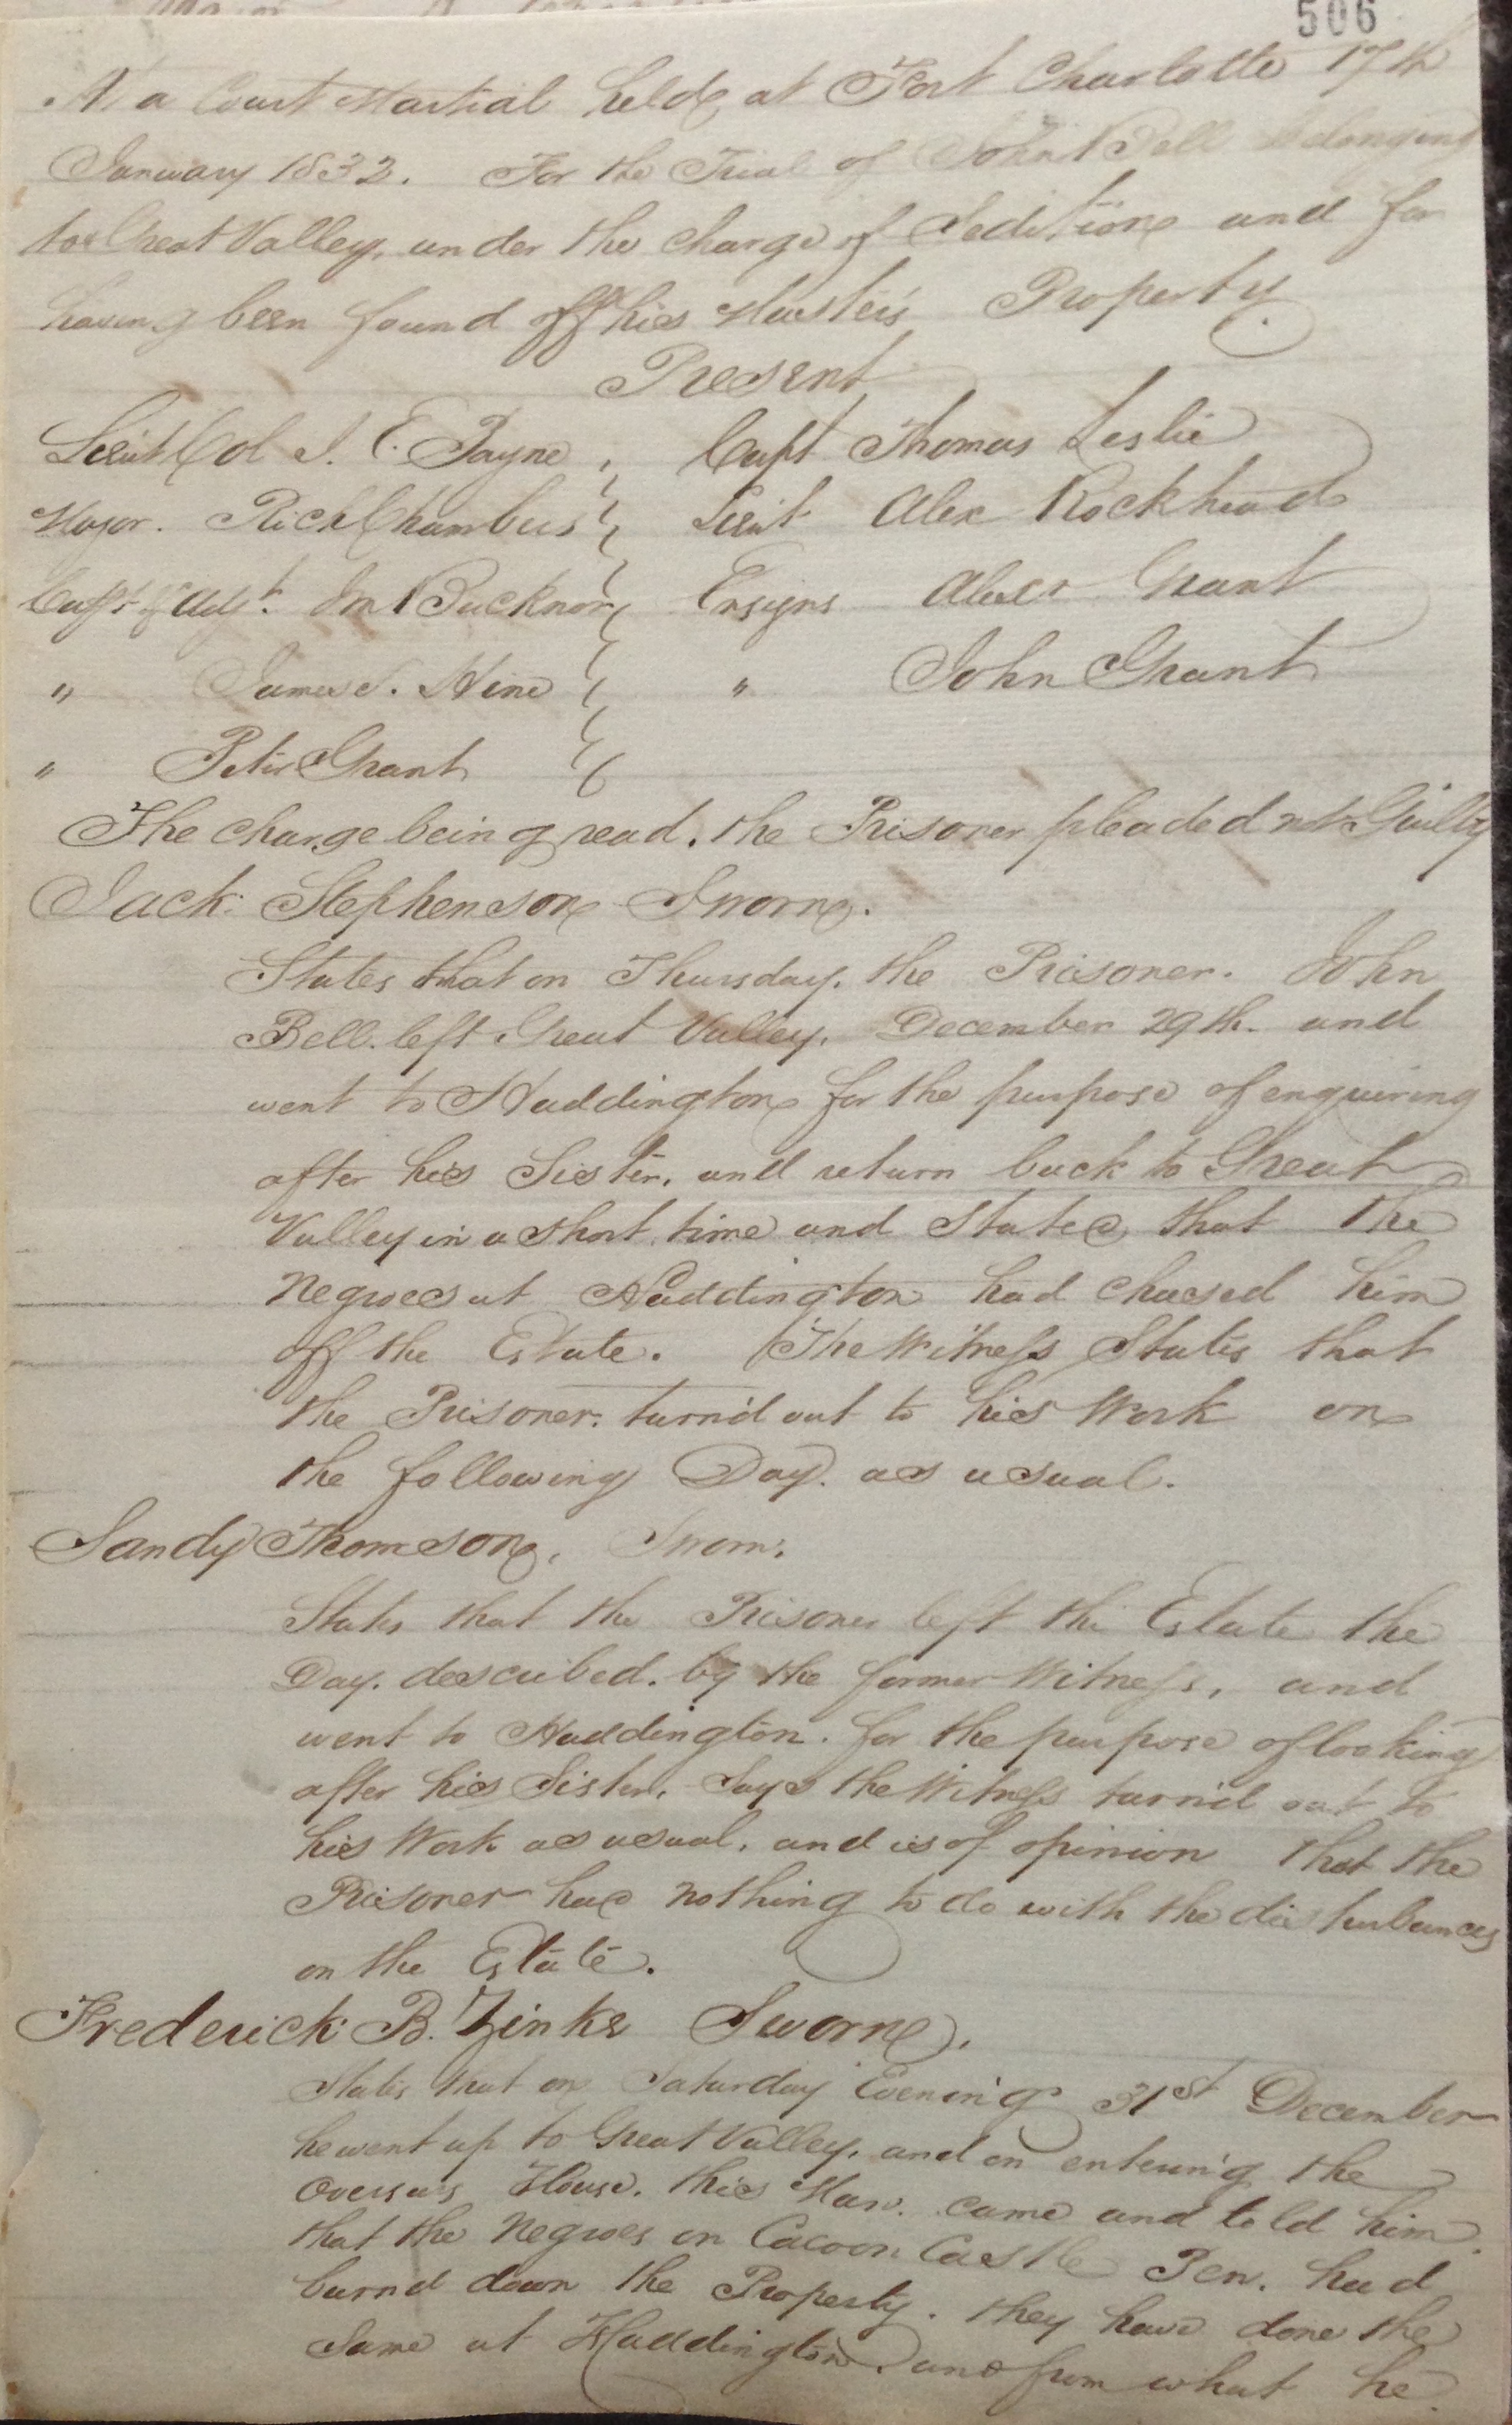 506
At a Court Martial held at Fort Charlotte 17th
January 1832. For the Trial of John Bell belonging
to Great Valley, under the charge of Sedition and for
having been found off his Master's Property.
Present
Lieut Col J. E. Payne, Capt Thomas Leslie
Major. Rich Chambers Lieut Alex Rockhead
Capt & Adjt. Jno Bucknor Ensigns Alexr Grant
" James S. Hine " John Grant
" Peter Grant
The charge being read. the Prisoner pleaded not Guilty
Jack Stephenson Sworn.
States that on Thursday. the Prisoner. John
Bell. left Great Valley. December 29th. and
went to Haddington for the purpose of enquiring
after his Sister. and return back to Great
Valley in a short time and States that the
Negroes at Haddington had chased him
off the Estate. The Witness States that
the Prisoner. turn'd out to his Work on
the following Day. as usual.
Sandy Thomson. Sworn.
States that the Prisoner left the Estate the
Day. described. by the former Witness, and
went to Haddington. for the purpose of looking
after his Sister. Says the Witness turn'd out to
his Work as usual. and is of opinion that the
Prisoner has nothing to do with the disturbances
on the Estate.
Frederick B. Zinke Sworn.
States that on Saturday Evening 31st December
he went up to Great Valley. and on entering the
Overseers House. this Man. came and told him
that the Negroes on Cacoon Castle Pen. had
burnd down the Property. they have done the
Same at Haddington. and from what he